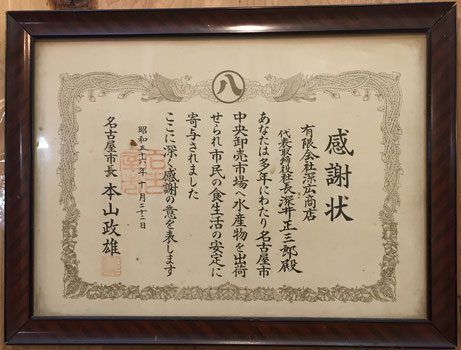 八
感謝状
有限会社深広商店
代表取締役社長深井正三郎殿
あなたは多年にわたり名古屋市
中央卸売市場へ水産物を出荷
せられ市民の食生活の安定に
寄与されました
ここに深く感謝の意を表します
昭和五十六年十月二十二日
名古屋市長本山政雄